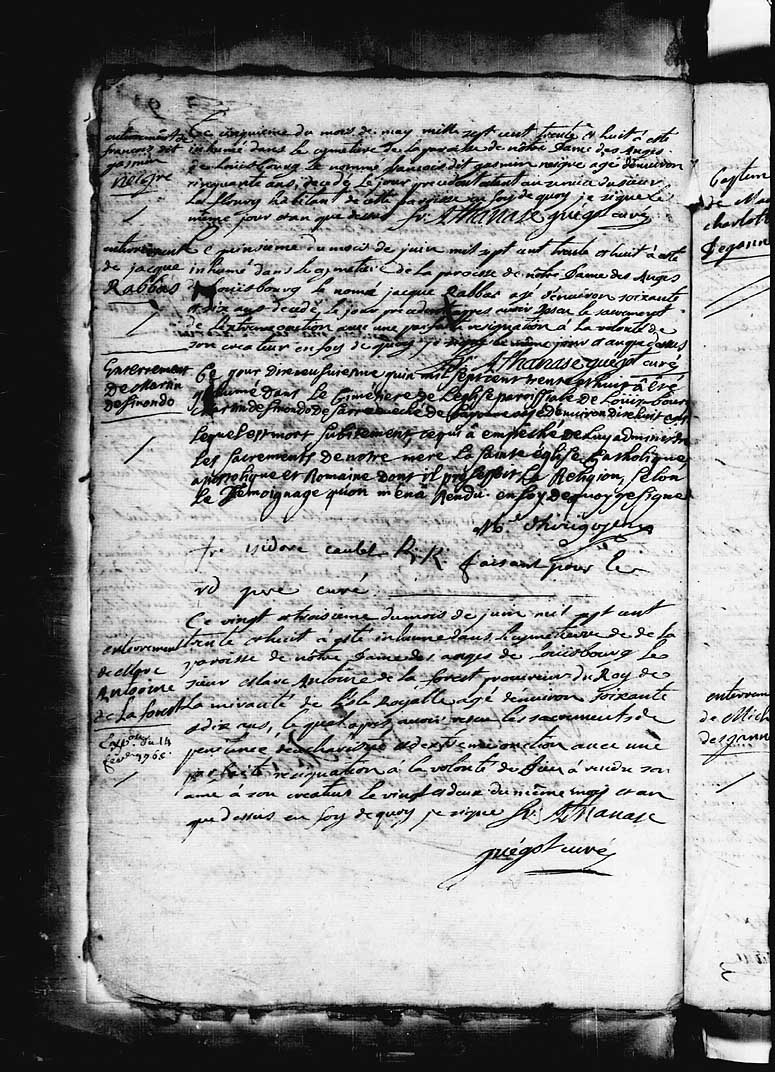 enterrement de
francois dit
gasmin
neigre
Ce cinquieme du mois de may mille sept cent trente et huit à esté
inhumé dans le cymetiere de la paroisse de notre Dame des Anges
de Louisbourg le nommé francois dit gasmin neigre agé d'environ
cinquante ans, decedé le jour precedent etant au service du sieur
la floury habitant de cette paroisse en foy de quoy je signe le
même jour et an que dessus fr. Athanase guégot curé
enterrement
de jacque
Rabbas
Ce quinsieme du mois de juin mil sept cent trente et huit à esté
inhumé dans le cymetiere de la paroisse de notre Dame des Anges
de Louisbourg le nommé jacque Rabbas agé d'environ soixante
et dix ans decedé le jour precedent apres avoir resceu le sacrement
de l'extremeonction avec une parfaite resignation à la volonté de
son createur en foy de quoy j'ay signé le même jour et an que dessus
fr. Athanase guégot curé
Enterrement
De Martin
de Sinondo
Ce jour dixneuviesme juin mil sept cent trente et huit à Eté
inhumé dans le Cimetiere de L'eglise parroissiale de Louisbourg
Martin de Sinondo de agé d'environ dixhuit ans
lequel est mort subitement, ce qui à empesché de Luy administrer
Les Sacrements de notre mere La Sainte église Catholique,
apostolique et Romaine dont il professoit La Religion, Selon
Le Témoignage qu'on m'en a Rendu. en foy de quoy je signe
fr. isidore caulet R. R. faisant pour le
rd pere curé
enterrement
de Marc
Antoine
de La forest
Expon. du 14
Ce vingt et troisieme du mois de juin mil sept cent
trente et huit a esté inhumé dans le cymetierre de de la
paroisse de nôtre Dame des anges de Louisbourg Le
sieur Marc Antoine de la forest procureur du Roy de
la miraute de l'isle Royalle agé d'environ soixante
et dix ans, lequel après avoir resceu les sacrements de
penitence d'eucharistie et d'extremeonction avec une
parfaite resignation à la volonté de Dieu à rendu son
ame à son createur le vingt et deux du même mois et an
que dessus en foy de quoy je signe fr. Athanase
guégot curé
de Ma
charlot
degann
enterreme
de Mich
desgann